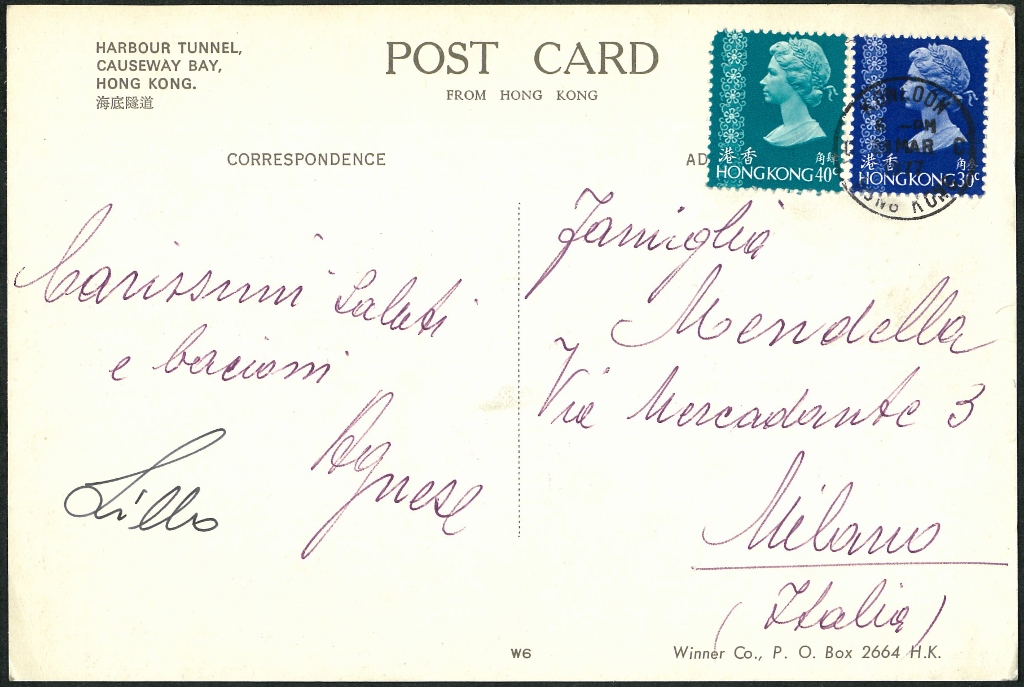 HARBOUR TUNNEL,
CAUSEWAY BAY,
HONG KONG.
海底隧道
POST CARD
FROM HONG KONG
CORRESPONDENCE
AD
香港
HONG KONG 40c
香港
HONG KONG 30c
KOWLOON
PM
MAR
HONG KONG
Carissimi saluti
e bacioni
Agnese
Lillo
Famiglia
Mendella
Via Mercadante 3
Milano
(Italia)
W6
Winner Co., P. O. Box 2664 H.K.